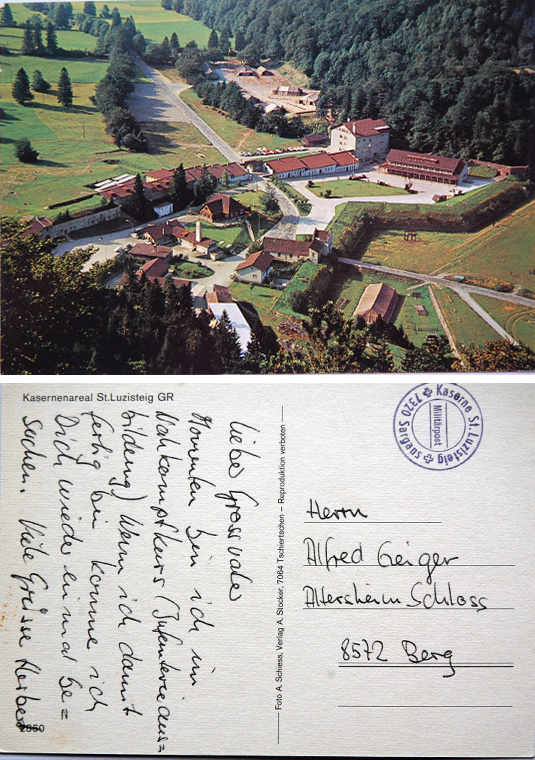 Kasernenareal St.Luzisteig GR
Liebe Grossvater
Momenten bin ich im
Nahkampfkurs (Infanterieaus=
bildung) Wenn ich damit
fertig bin komme ich
Dich wieder einmal be=
suchen. Viele Grüsse Herbert
2860
Foto A. Schiess, Verlag A. Stocker, 7064 Tschiertschen – Reproduktion verboten
Kaserne St. Luzisteig
Militärpost
7320 Sargans
Herrn
Alfred Geiger
Altersheim Schloss
8572 Berg